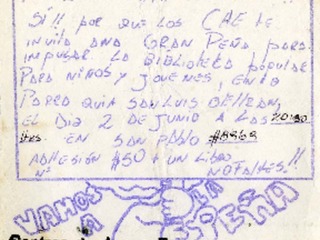 SÍ!! por que los CAE te
invita una GRAN PEÑA para
impulsar la biblioteca popular
para niños y jovenes, en la
Parroquia San Luis Beltran,
el dia 2 de junio a las 20:30
Hrs. en San Pablo #8868
Adhesión $50 + un libro
Nº NO FALTES!!
VAMOS A LA PEÑA